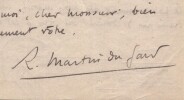 moi, cher Monsieur, bien
ement votre.
R. Martin du Gard